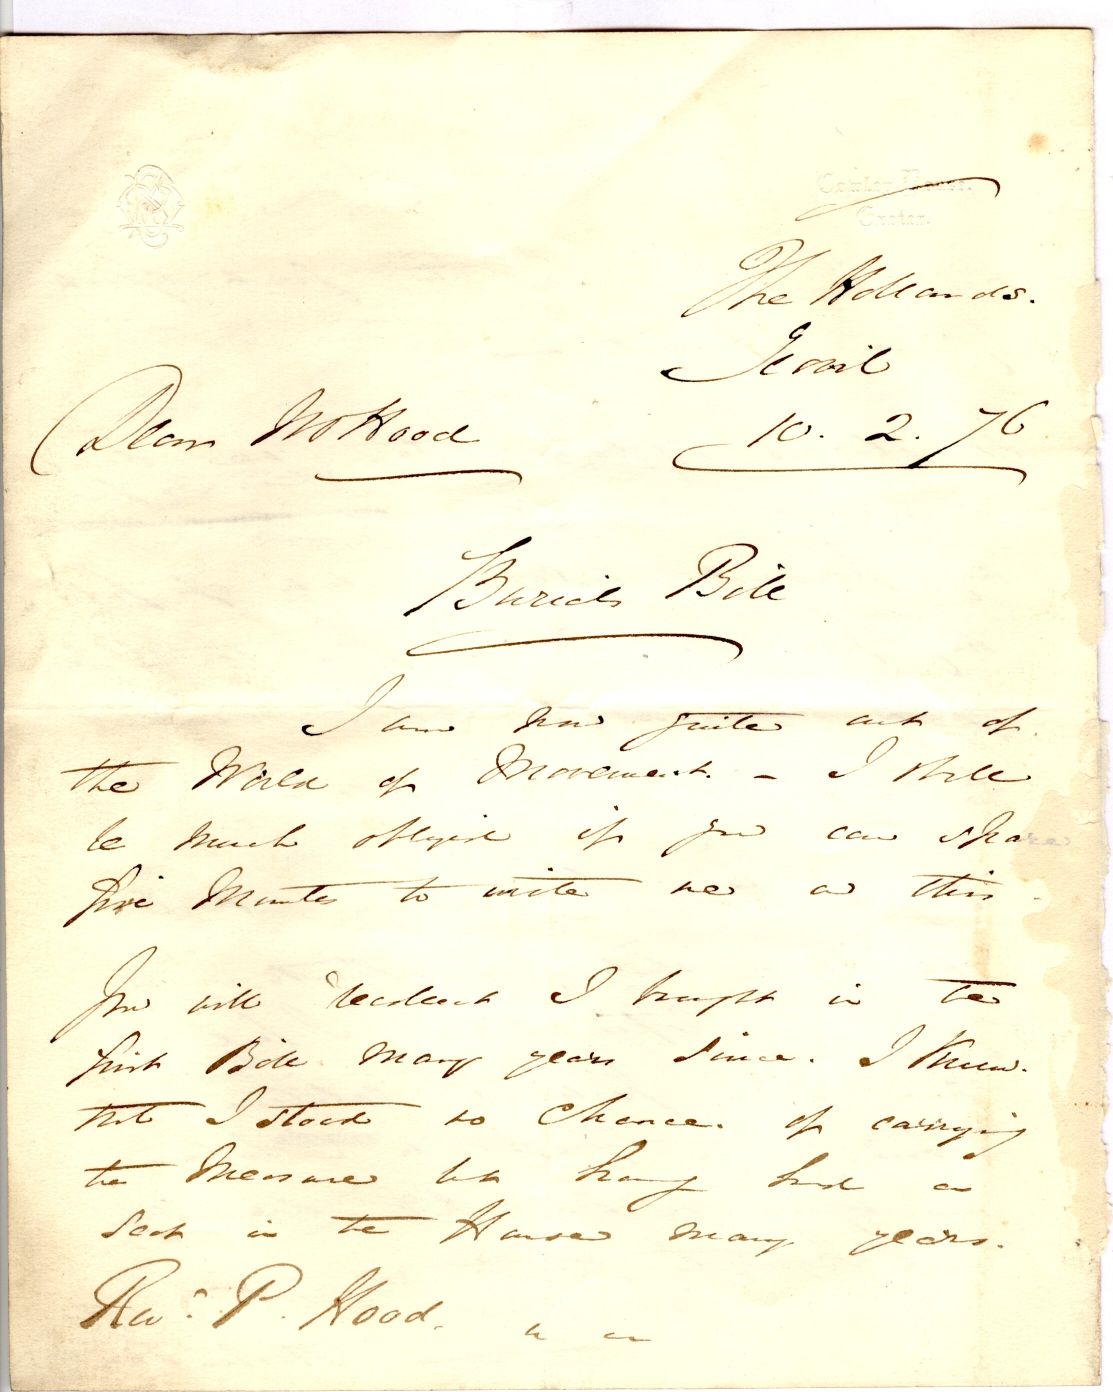 Cowley House.
Exeter.
The Hollands.
Yeovil
10. 2. 76
Dear Mr Hood
Burials Bill
I am now quite out of
the World of Movement. - I shall
be much obliged if you can spare
five Minutes to write me on this.
You will recollect I brought in the
first Bill many years since. I knew.
that I stood no chance. of carrying
the Measure but having had a
Seat in the House many years.
Revd. P. Hood.